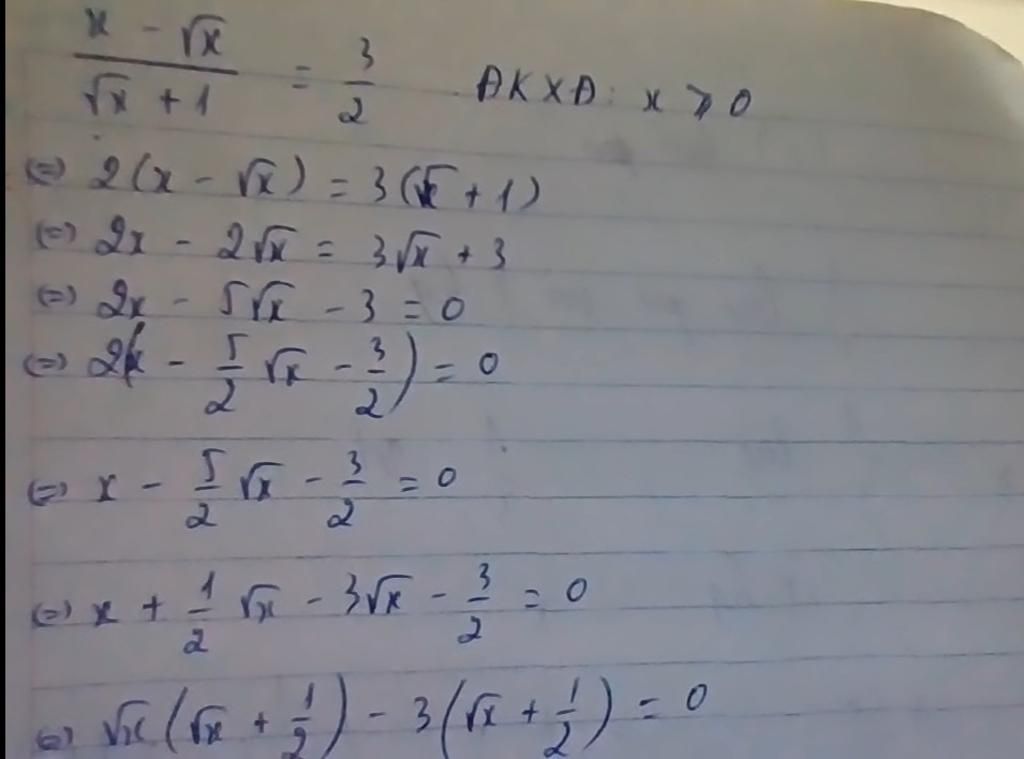 (x - √x)/(√x + 1) = 3/2 ĐKXĐ: x ⩾ 0
(=) 2(x - √x) = 3(√x + 1)
(=) 2x - 2√x = 3√x + 3
(=) 2x - 5√x - 3 = 0
(=) 2(x - 5/2 √x - 3/2) = 0
(=) x - 5/2 √x - 3/2 = 0
(=) x + 1/2 √x - 3√x - 3/2 = 0
(=) √x(√x + 1/2) - 3(√x + 1/2) = 0